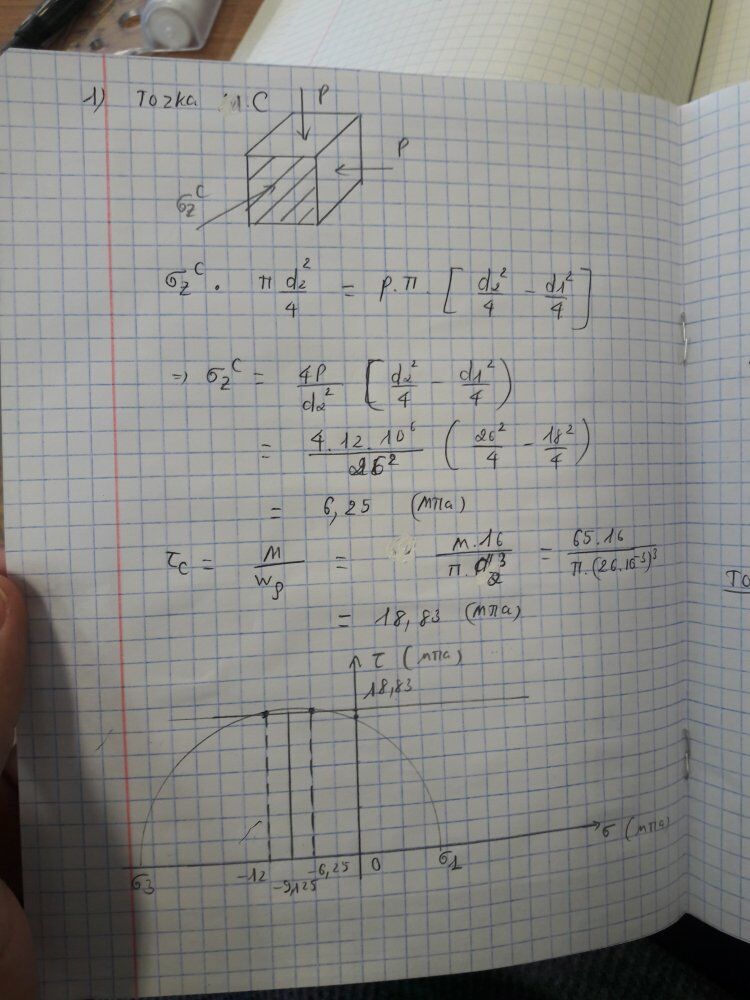 1) Точка М.С
P
P
σz^C
σz^C · π d2²/4 = p.π. [ d2²/4 - d1²/4 ]
=> σz^C = 4P/d2² ( d2²/4 - d1²/4 )
= 4.12.10⁶/26² ( 26²/4 - 18²/4 )
= 6,25 (мпа)
τc = M/Wρ = м.16/π.d2³ = 65.16/π.(26.10⁻³)³
= 18,83 (мпа)
τ (мпа)
18,83
σ (мпа)
σ3 -12 -9,125 -6,25 0 σ1
ТО